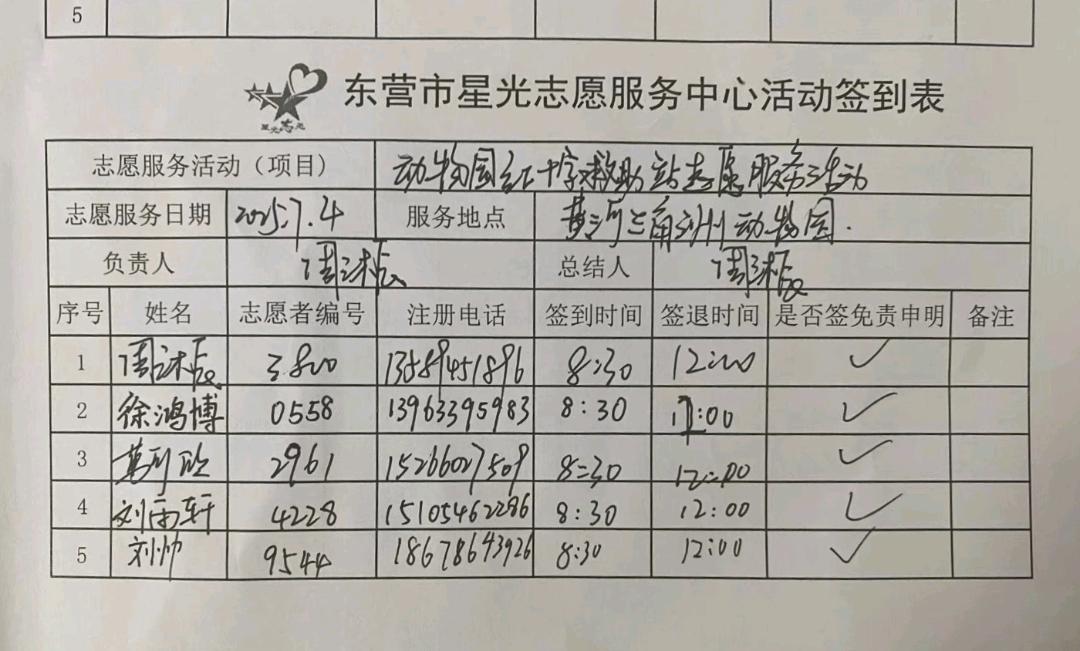 5
星光志愿
东营市星光志愿服务中心活动签到表
志愿服务活动（项目） 动物园红十字救助站志愿服务活动
志愿服务日期 2025.7.4 服务地点 黄河三角洲动物园.
负责人 周沐辰 总结人 周沐辰
序号 姓名 志愿者编号 注册电话 签到时间 签退时间 是否签免责申明 备注
1 周沐辰 3800 13589451896 8:30 12:00 ✓
2 徐鸿博 0558 13963395983 8:30 12:00 ✓
3 2961 15266027509 8:30 12:00 ✓
4 刘雨轩 4228 15105462286 8:30 12:00 ✓
5 刘帅 9544 18678643926 8:30 12:00 ✓